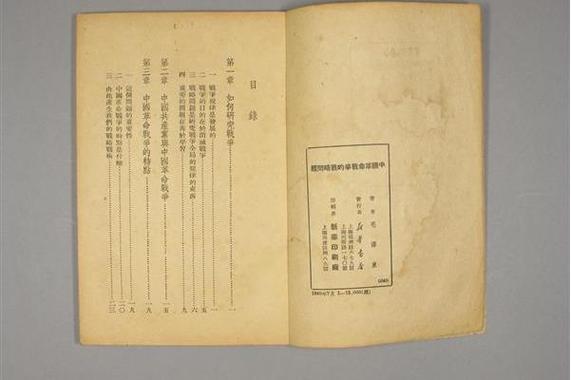 目錄
第一章 如何研究戰爭……一
一 戰爭規律是發展的……一
二 戰爭的目的在於消滅戰爭……五
三 戰略問題是研究戰爭全局的規律的東西……六
四 重要的問題在善於學習……九
第二章 中國共產黨與中國革命戰爭……一五
第三章 中國革命戰爭的特點……一九
一 這個問題的重要性……一九
二 中國革命戰爭的特點是什麼……二〇
三 由此產生我們的戰略戰術……二三
中國革命戰爭的戰略問題
著者 毛澤東
發行者 新華書店
印刷者 新華印刷廠